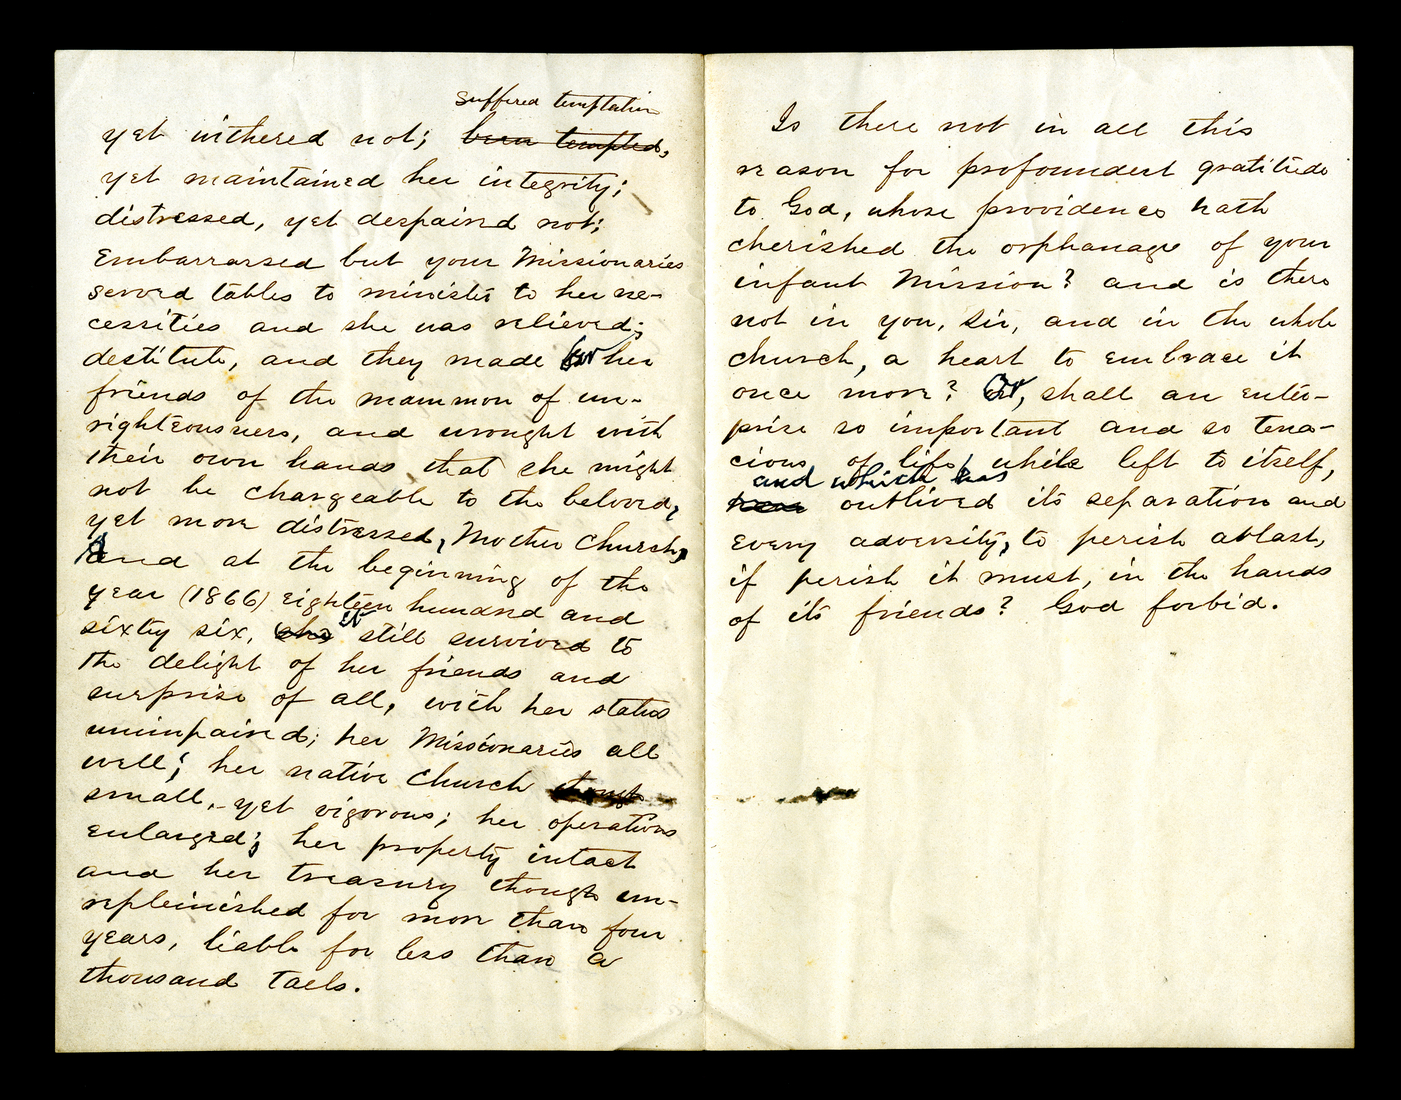 suffered temptation
yet withered not; been tempted,
yet maintained her integrity;
distressed, yet despaired not;
Embarrassed but your Missionaries
served tables to minister to her ne-
cessities and she was relieved;
destitute, and they made for her
friends of the mammon of un-
righteousness, and wrought with
their own hands that she might
not be chargeable to the beloved,
yet more distressed, Mother Church,
And at the beginning of the
year (1866) eighteen hundred and
it
sixty six, she still survived to
the delight of her friends and
surprise of all, with her status
unimpaired; her Missionaries all
well; her native church though
small, yet vigorous; her operations
enlarged; her property intact
and her treasury though un-
replenished for more than four
years, liable for less than a
thousand taels.
Is there not in all this
reason for profoundest gratitude
to God, whose providence hath
cherished the orphanage of your
infant Mission? and is there
not in you, Sir, and in the whole
church, a heart to embrace it
once more? Or, shall an enter-
prise so important and so tena-
cious of life, while left to itself,
and which has
outlived its separation and
every adversity, to perish at last,
if perish it must, in the hands
of its friends? God forbid.